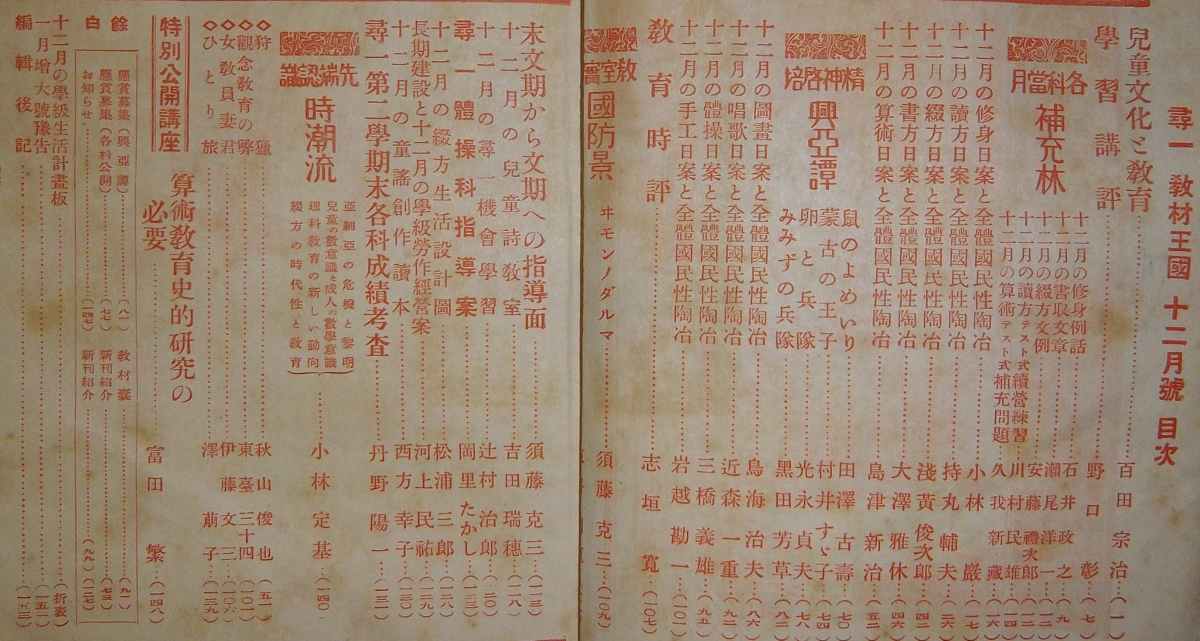 尋一 教材王國 十二月號 目次
兒童文化と教育……百田宗治(一
學習講評……野口彰(
各科當月 補充林
十二月の修身例話……石井政之(九
十二月の書取文章……瀬尾洋一(
十二月の綴方文例……安藤禮次郎(
十二月の讀方テスト式續營練習……川村民雄(一四
十二月の算術テスト式補充問題……久我新藏(一六
十二月の修身日案と全體國民性陶冶……小林巖(
十二月の讀方日案と全體國民性陶冶……持丸輔夫(
十二月の綴方日案と全體國民性陶冶……淺黃俊次郎(四二
十二月の書方日案と全體國民性陶冶……大澤雅休(四六
十二月の算術日案と全體國民性陶冶……島津新治(五二
精神啓培 興亞譚
鼠のよめいり……田澤古壽(七〇
蒙古の王子……村井すゞ子(七四
卵と兵隊……光永貞夫(七八
みみずの兵隊……黑田芳草(八二
十二月の圖畫日案と全體國民性陶冶……鳥海治夫(八六
十二月の唱歌日案と全體國民性陶冶……近森一重(
十二月の體操日案と全體國民性陶冶……三橋義雄(九五
十二月の手工日案と全體國民性陶冶……岩越勘一(一〇一
教育時評……志垣寬(一〇七
教室實 國防景 ヰモンノダルマ……須藤克三(一〇九
末文期から文期への指導面……須藤克三(一一五)
十二月の兒童詩教室……吉田瑞穗(一一八)
十二月の尋一機會學習……辻村治郎(一二〇)
尋一體操科指導案……岡里たかし(
十二月の綴方生活設計圖……松浦三郎(
長期建設と十二月の學級勞作經營案……河上民祐(一二九)
十二月の童謠創作讀本……西方幸子(一三〇)
尋一第二學期末各科成績考査……丹野陽一(一三一)
先端認識 時潮流
亞細亞の危機と黎明
兒童の數意識と成人の數學意識
理科教育の新しい動向
綴方の時代性と教育
小林定基(一四〇)
◇狩獵……秋山俊也(五一)
◇觀念教育の弊……東臺三十四(一〇〇)
◇女教員妻君……伊藤文三(一〇六)
◇ひとり旅……澤萠子(一三九)
特別公開講座 算術教育史的研究の必要……富田繁(一四八)
餘白
懸賞募集(興亞譚)……(八一) 教材囊……(九一)
懸賞募集(各科公開)……(七七) 新刊紹介……(七三)
お知らせ……(一四七) 新刊紹介……(九九)(一二七)
十二月の學級生活計畫板……(折表)
一月增大號豫告……(一五一)
編輯後記……(一五二)